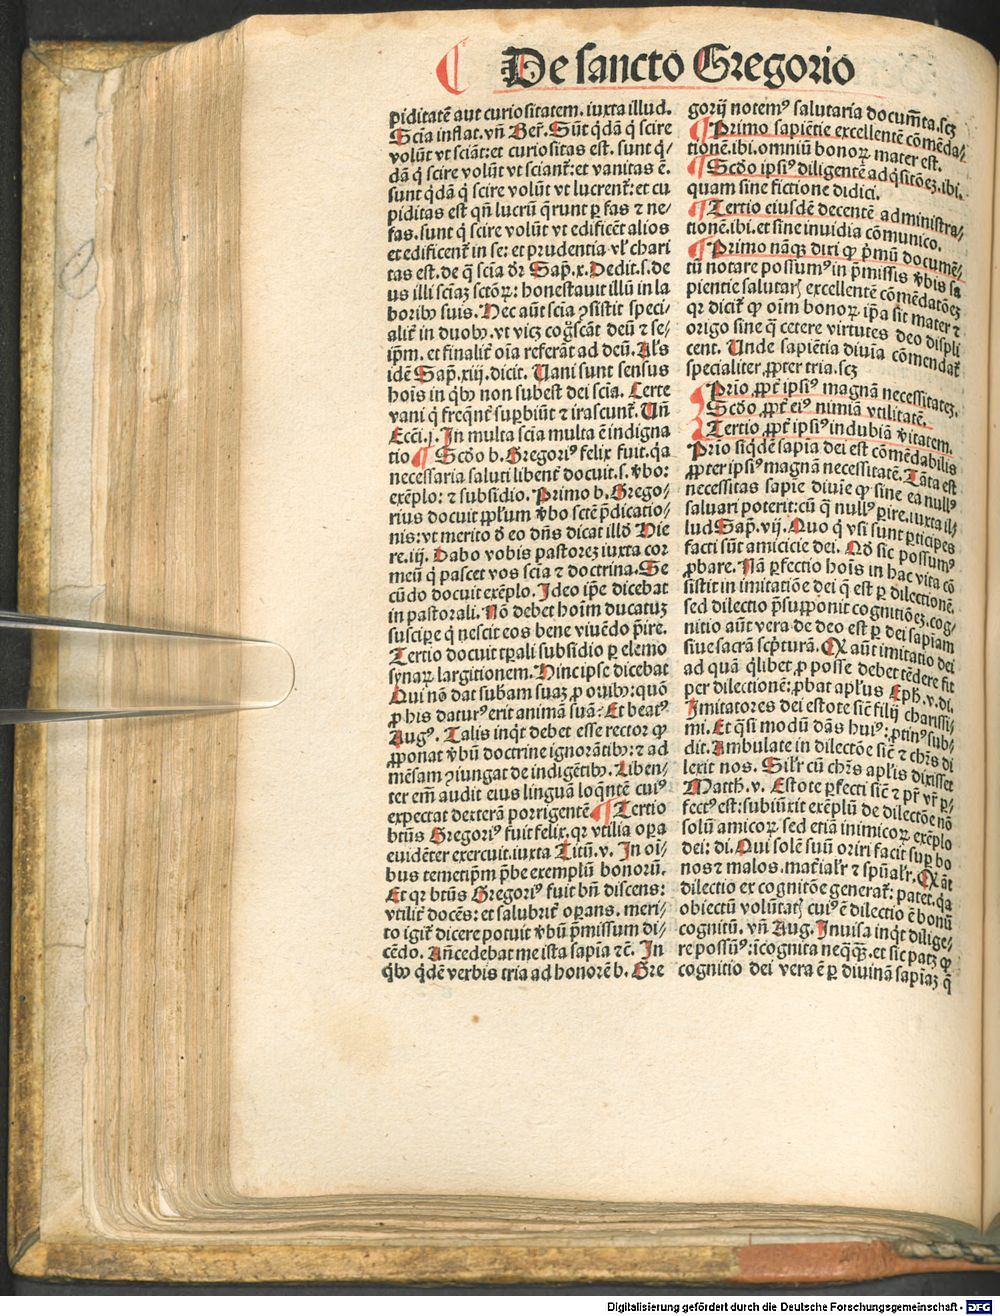 De sancto Gregorio
piditatē aut curiositatem. iuxta illud.
Sciā inflat. vñ Ber̄. Sūt qd̄ā q̇ scire
volūt vt sciāt: et curiositas est. sunt q̇-
dā q̇ scire volūt vt sciant᷑: et vanitas ē.
sunt qd̄ā q̇ scire volūt vt lucrent᷑: et cu
piditas est qñ lucrū q̄runt ꝑ fas ⁊ ne/
fas. sunt q̇ scire volūt vt edificēt alios
et edificent᷑ in se: et prudentia vl̓ chari
tas est. de q̄ scīa dr̄ Sap̄. x. Dedit .s. de
us illi sciaꝫ sctōꝝ: honestauit illū in la
boribꝰ suis. Hec aūt scīa ꝯsistit speci-
alit᷑ in duobꝰ. vt vicꝫ cog̊scāt deū ⁊ se-
ip̄m. et finalit᷑ oīa referāt ad deū. Als
idē Sap̄. xiij. dicit. Uani sunt sensus
hoīs in qḃꝰ non subest dei scīa. Certe
vani q̇ freq̄nt᷑ suꝑbiūt ⁊ irascunt᷑. Uñ
Ecc̄i. j. In multa scīa multa ē indigna
tio ¶ Scd̓o b. Gregoriꝰ felix fuit. qa
necessaria saluti libent᷑ docuit .s. v̓bo:
exēplo: ⁊ subsidio. Primo b. Grego-
rius docuit ppl̓um v̓bo sct̄e p̄dicatio-
nis: vt merito d̓ eo dn̄s dicat illd̓ Hie
re. iij. Dabo vobis pastoreꝫ iuxta cor
meū q̇ pascet vos scīa ⁊ doctrina. Se
cūdo docuit exēplo. Ideo ip̄e dicebat
in pastorali. Nō debet hoīm ducatuꝫ
susciꝑe q̇ nescit eos bene viuēdo p̄ire.
Tertio docuit tꝑali subsidio ꝑ elemo
synaꝝ largitionem. Hinc ipse dicebat
Qui nō dat sub̄am suaꝫ ꝓ ouibꝰ: quō
ꝓ his daturꝰ erit animā suā: Et beatꝰ
Augꝰ. Talis inq̇t debet esse rector ꝙ
ꝓponat v̓bū doctrine ignorātibꝰ: ⁊ ad
mēsam ꝯiungat de indigētibꝰ. Liben-
ter em̄ audit eius linguā loq̄ntē cuiꝰ
expectat dexterā porrigentē ¶ Tertio
btūs Gregoriꝰ fuit felix. qr vtilia oꝑa
euidēter exercuit. iuxta Titū. v. In oi/
bus temetip̄m p̄be exemplū bonorū.
Et qr btūs Gregoriꝰ fuit bñ discens:
vtilit᷑ docēs: et salubrit᷑ oꝑans. meri-
to igit᷑ dicere potuit v̓bū p̄missum di/
cēdo. Añcedebat me ista sapīa ⁊c̄. In
qḃꝰ qd̄ē verbis tria ad honorē b. Gre
gorij notemꝰ salutaria docum̄ta. scꝫ
¶ Primo sapiētie excellentē cōmēda-/
tionē. ibi. omniū bonoꝝ mater est.
¶ Scd̓o ipsiꝰ diligentē adq̇sitōeꝫ. ibi.
quam sine fictione didici.
¶ Tertio eiusdē decentē administra-/
tionē. ibi. et sine inuidia cōmunico.
¶ Primo nāqꝫ dixi ꝙ p̄mū documē-/
tū notare possumꝰ in p̄missis v̓bis sa
pientie salutarꝭ excellentē cōmēdatōeꝫ
qr dicit᷑ ꝙ oīm bonoꝝ ip̄a sit mater ⁊
origo sine q̄ cetere virtutes deo displi
cent. Unde sapiētia diuīa cōmendat᷑
specialiter ꝓpter tria. scꝫ
Prīo ꝓpt᷑ ipsiꝰ magnā necessitateꝫ.
Scd̓o ꝓpt᷑ eiꝰ nimiā vtilitatē.
Tertio ꝓpt᷑ ipsiꝰ indubiā v̓itatem.
Prīo siqd̄ē sapīa dei est cōmēdabilis
ꝓpter ipsiꝰ magnā necessitatē. Tāta est
necessitas sapīe diuīe ꝙ sine ea nullꝰ
saluari poterit: cū q̄ nullꝰ ꝑire. iuxta il-/
lud Sap̄. vij. Quo q̇ vsi sunt ꝑticipes
facti sūt amicicie dei. Qd̓ sic possumꝰ
ꝓbare. Nā ꝑfectio hoīs in hac vita cō
sistit in imitatiōe dei q̄ est ꝑ dilectionē.
sed dilectio p̄supponit cognitiōeꝫ. cog-/
nitio aūt vera de deo est ꝑ dei sapīam
siue sacrā scp̄turā. Qꝫ aūt imitatio dei
ad quā q̇libet ꝓ posse debet tēdere fit
per dilectionē: ꝓbat aplūs Eph̄. v. di.
Imitatores dei estote sic̄ filij charissi-/
mi. Et q̄si modū dās huiꝰ: ꝓtinꝰ sub-/
dit. Ambulate in dilectōe sic̄ ⁊ chr̄s di
lexit nos. Silr̄ cū chr̄s aplīs dixisset
Matth̄. v. Estote ꝑfecti sic̄ ⁊ pr̄ vr̄ ꝑ-/
fectꝰ est: subiūxit exēplū de dilectōe nō
solū amicoꝝ sed etiā inimicoꝝ exēplo
dei: di. Qui solē suū oriri facit suꝑ bo
nos ⁊ malos. mat᷑ialr̄ ⁊ spūalr̄. Qꝫ aūt
dilectio ex cognitōe generat᷑: patet. qa
obiectū volūtatꝭ cuiꝰ ē dilectio ē bonū
cognitū. vñ Aug. Inuisa inq̇t dilige-/
re possumꝰ: īcognita neqꝗꝫ. et sic patꝫ ꝙ
cognitio dei vera ē ꝑ diuinā sapīaꝫ q̄
Digitalisierung gefördert durch die Deutsche Forschungsgemeinschaft - DFG